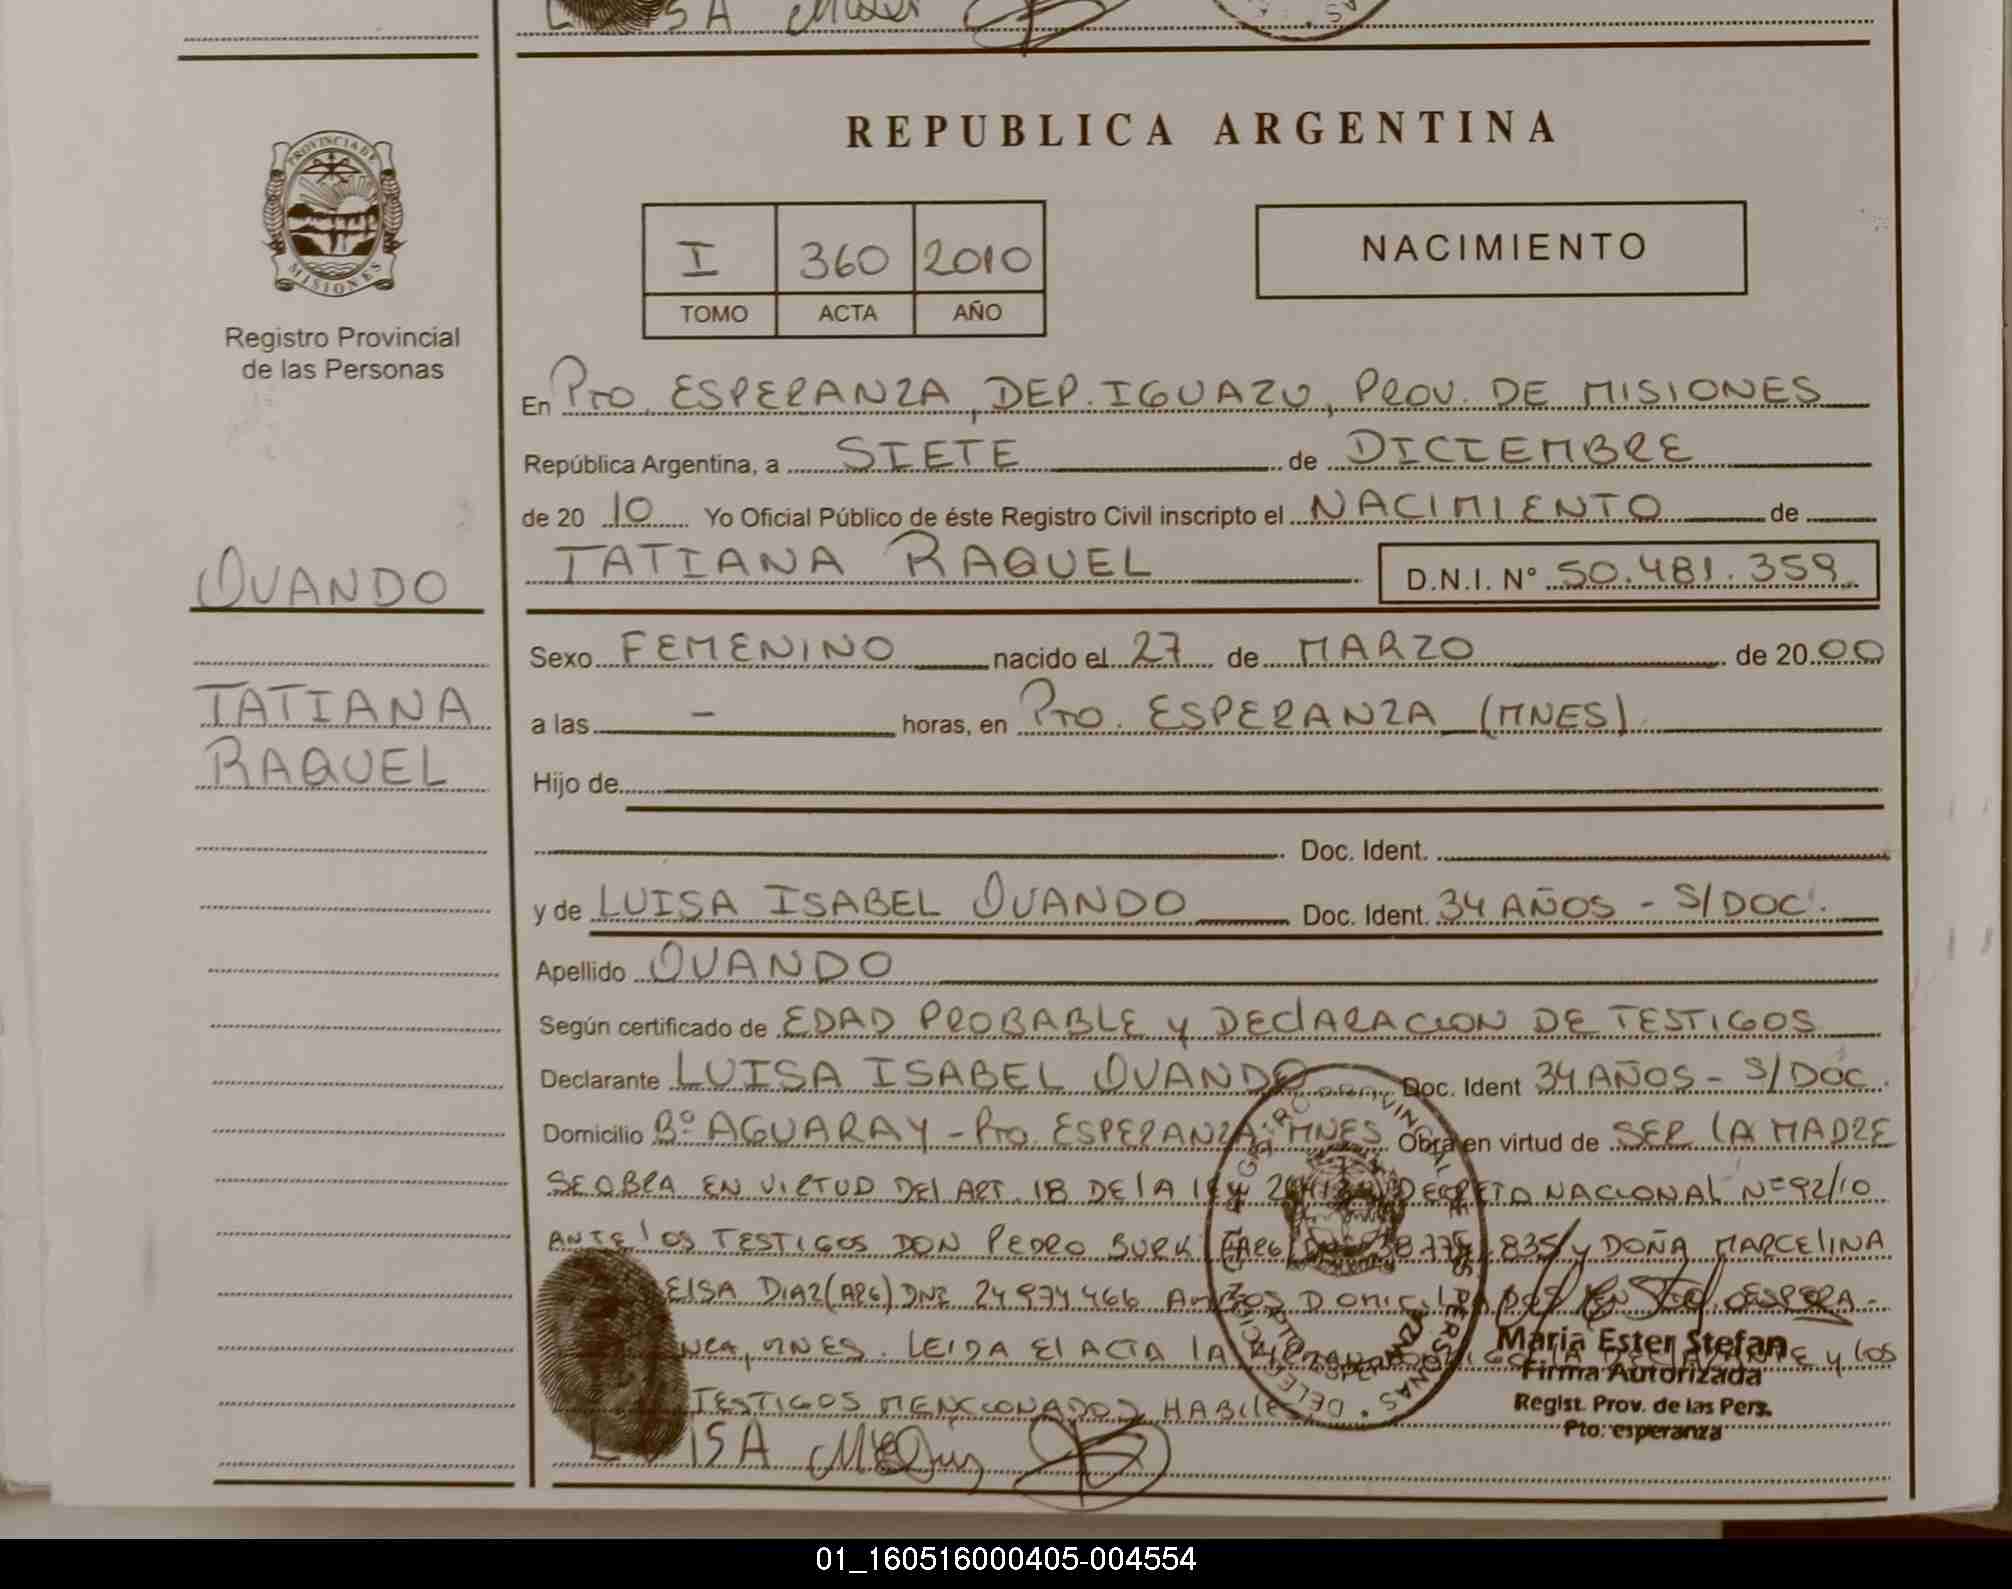 REPUBLICA ARGENTINA
PROVINCIA DE MISIONES
Registro Provincial
de las Personas
I 360 2010
TOMO ACTA AÑO
NACIMIENTO
En Pto. ESPERANZA, DEP. IGUAZU, PROV. DE MISIONES
República Argentina, a SIETE de DICIEMBRE
de 20 10 Yo Oficial Público de éste Registro Civil inscripto el NACIMIENTO de
TATIANA RAQUEL D.N.I. N° 50.481.359
OVANDO
TATIANA
RAQUEL
Sexo FEMENINO nacido el 27 de MARZO de 20 00
a las - horas, en Pto. ESPERANZA (MNES)
Hijo de
Doc. Ident.
y de LUISA ISABEL OVANDO Doc. Ident. 34 AÑOS - S/DOC.
Apellido OVANDO
Según certificado de EDAD PROBABLE y DEClARACION DE TESTIGOS
Declarante LUISA ISABEL OVANDO Doc. Ident 34 AÑOS - S/DOC.
Domicilio B° AGUARAY - Pto ESPERANZA-MNES Obra en virtud de SER lA MADRE
SE OBRA EN VIRTUD DEl ART. 18 DE lA lEY DECRETO NACIONAL N° 92/10
ANTE lOS TESTIGOS DON PEDRO BURK (ARG) y DOÑA MARCELINA
ElSA DIAZ (ARG) DNI 24974466 AMBOS DOMICILIADOS EN Pto. ESPERA-
NZA, MNES. LEIDA El ACTA lA y lOS
TESTIGOS MENCIONADOS HABILES
LUISA
Maria Ester Stefan
Firma Autorizada
Regist. Prov. de las Pers.
Pto. esperanza
01_160516000405-004554